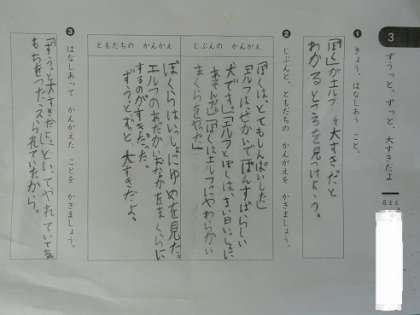 3
ずうっと、ずっと、大すきだよ
❶ きょう、はなしあう こと。
「ぼく」がエルフを大すきだと
わかるところを見つけよう。
❷ じぶんと、ともだちの かんがえを かきましょう。
じぶんの かんがえ
「ぼくは、とてもしんぱいした」
「エルフは、せかいでいちばんすばらしい
犬です」「エルフとぼくは、まい日いっしょに
あそんだ」「ぼくはエルフにやわらかい
まくらをやった」
ともだちの かんがえ
ぼくらはいっしょにゆめを見た。
エルフのあったかいおなかをまくらに
するのがすきだった。
ずうっとずっと大すきだよ。
❸ はなしあって かんがえた ことを かきましょう。
「ずうっと大すきだよ」といってやれていて気
もちをつたえられていたから。